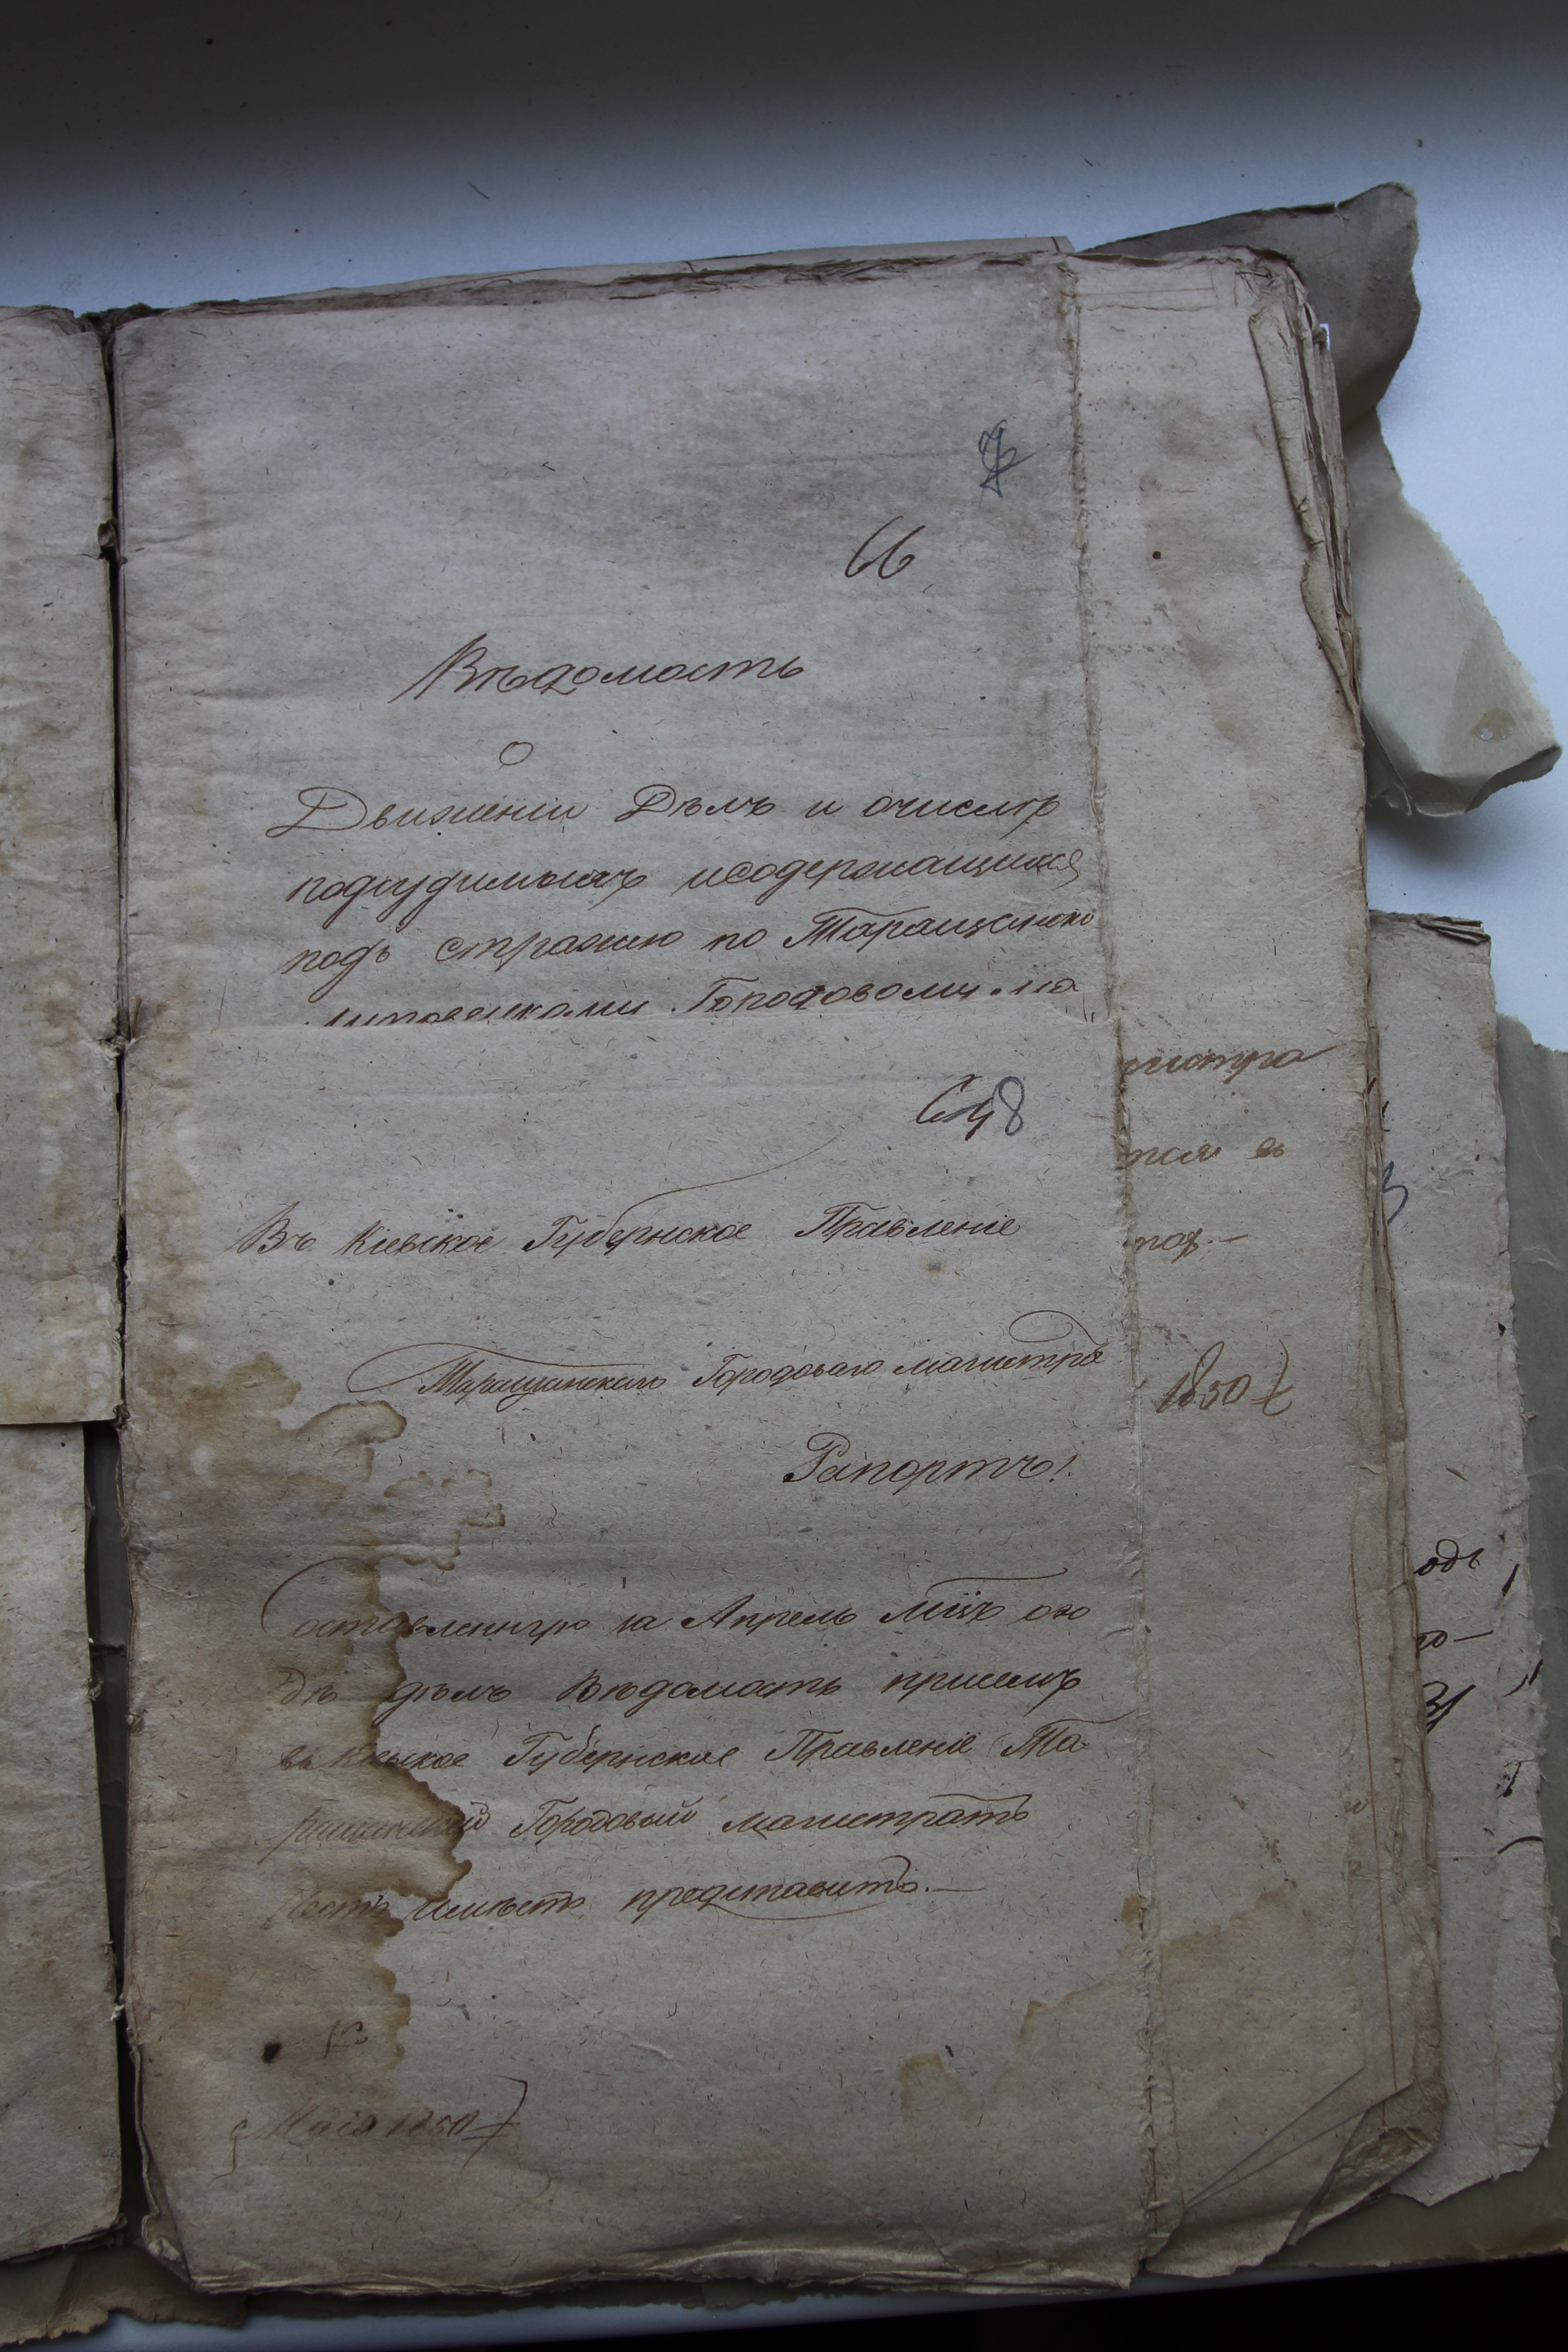 66
Вѣдомость
О
Движеніи Дѣлъ и очислѣ
подсудимыхъ исодержащихся
подъ стражею по Таращанско
Городовому ма
гистра
648
въ
Въ Кіевское Губернское Правленіе
Таращанскаго Городоваго магистра
1850
Рапортъ!
Составленную за Апрель Мцъ ого
дѣлъ Вѣдомость присемъ
въ Кіевское Губернское Правленіе Та-
ращанскій Городовый магистратъ
честь имѣетъ представить.—
Маія 1850